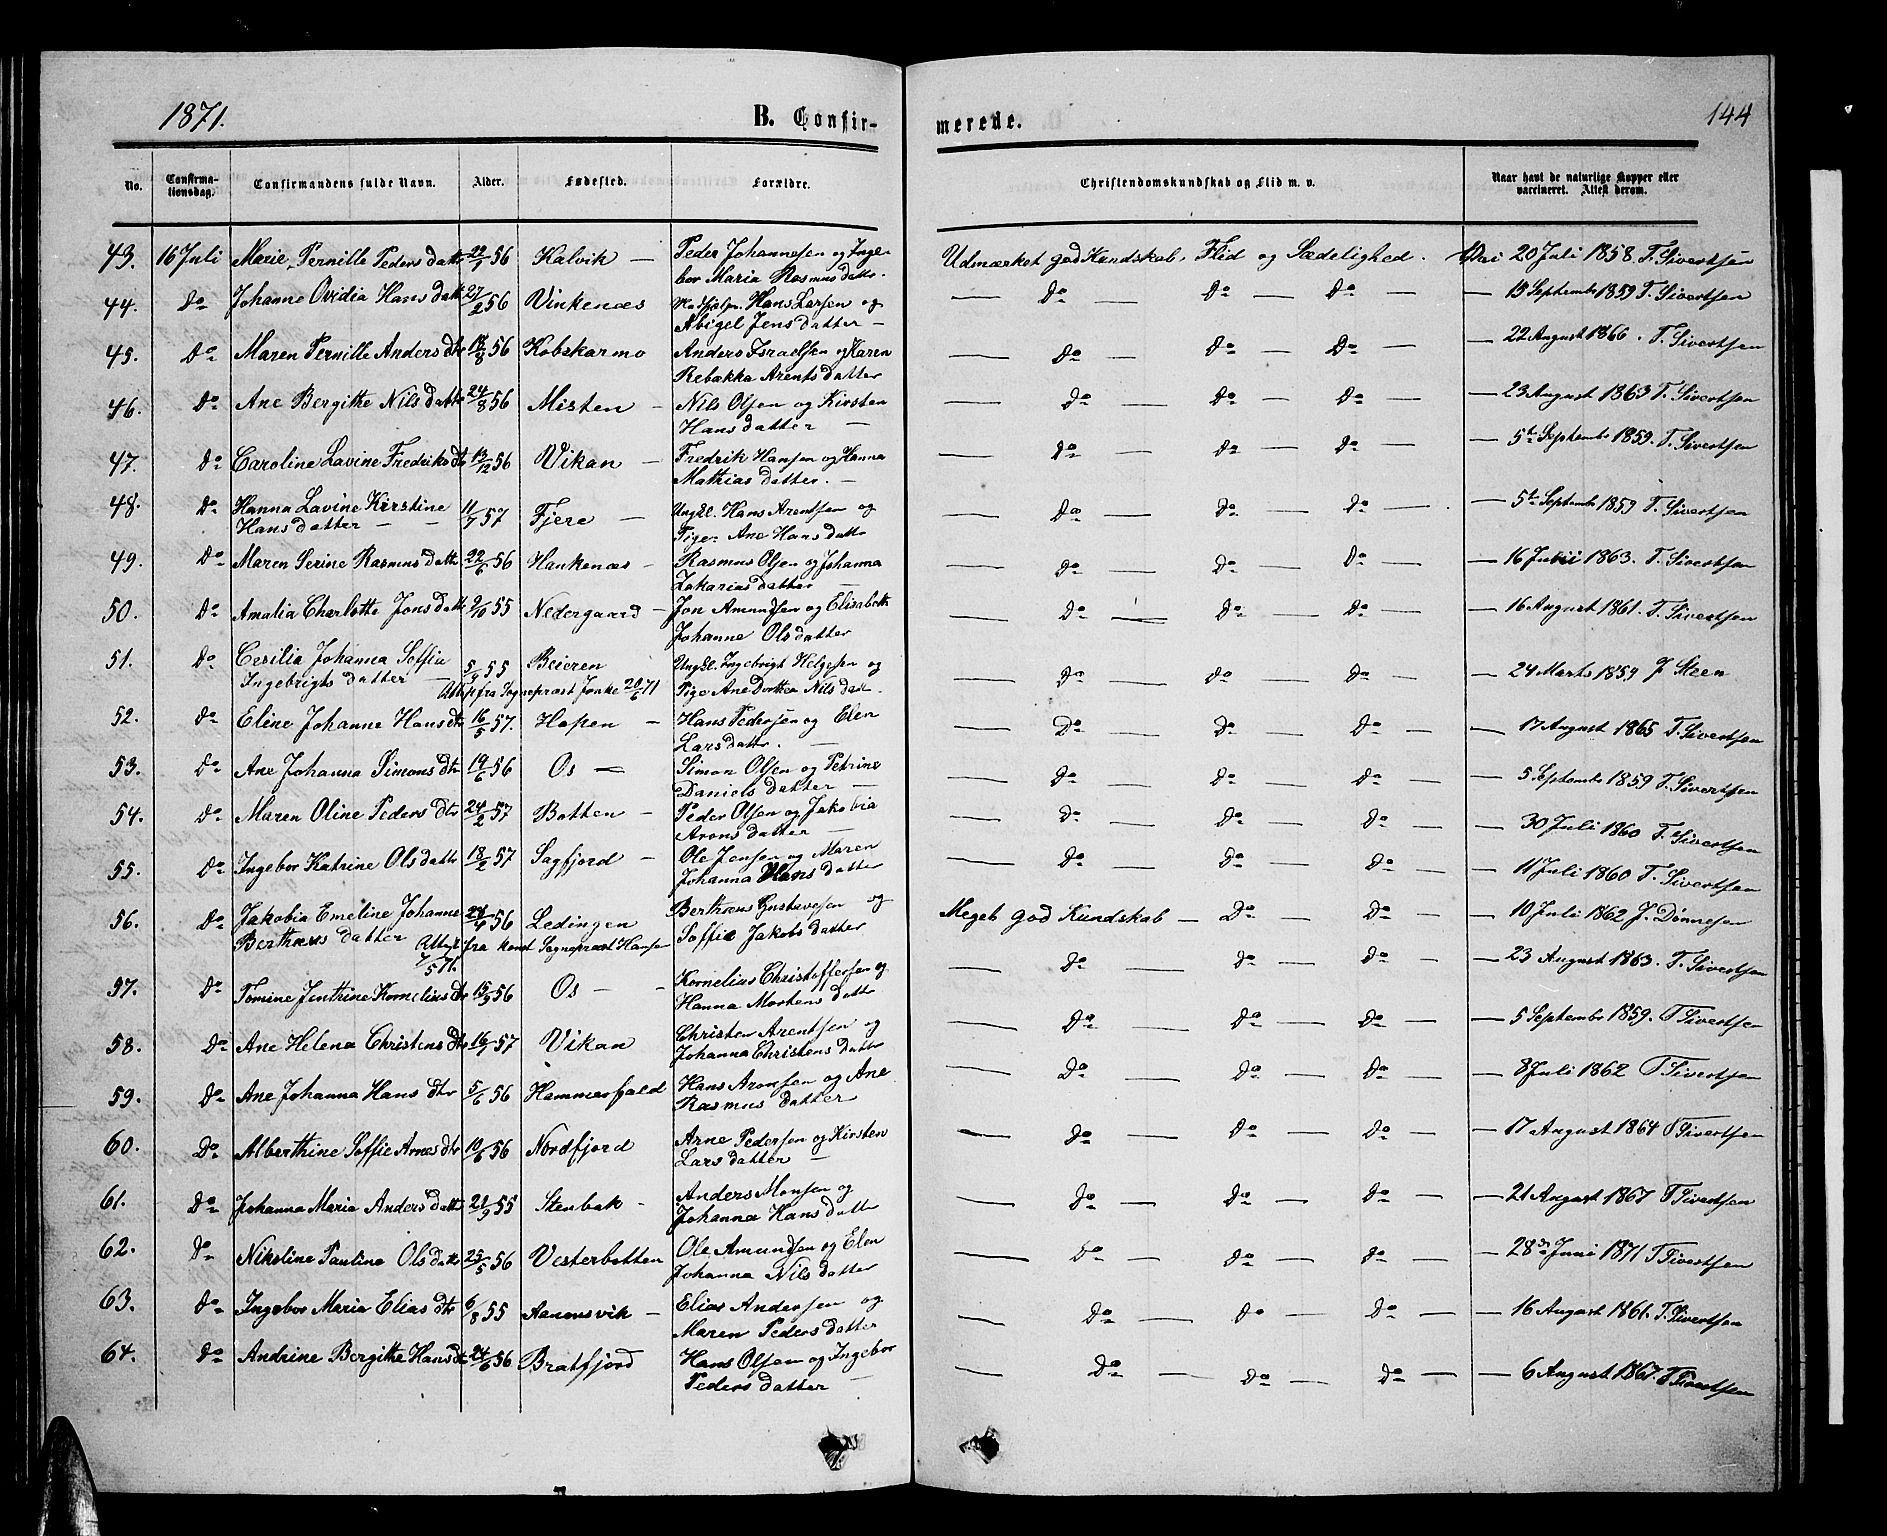 1871.
B. Confir-
merede.
144
No.
Confirma-
tionsdag.
Confirmandens fulde Navn.
Alder.
Fødested.
Forældre.
Christendomskundskab og Flid m. v.
Naar havt de naturlige Kopper eller
vaccineret. Attest derom.
43. 16 Juli Marie Pernille Peders datt 56 Kalvik — Peder Johannesen og Inge-
bor Maria Rasmus datt. Udmærket god Kundskab. Flid og Sædelighed. 20 Juli 1858. T. Sivertsen
44. Do Johanne Ovidia Hans datt 27/2 56 Vinkenæs Hans Larsen og
Abigel Jens datter — — Do — Do — Do — — 19 Septembr 1859 T. Sivertsen
45. Do Maren Pernille Anders dtr 18/8 56 Kobskarmo Anders Israelsen og Karen
Rebækka Arents datter — Do — Do — Do — — 22 August 1866. T. Sivertsen
46. Do Ane Bergitte Nils datt 24/8 56 Misten — Nils Olsen og Kirsten
Hans datter — — Do — Do — Do — — 23 August 1863 T. Sivertsen
47. Do Caroline Lavine Fredriks dtr 13/12 56 Vikan — Fredrik Hansen og Hanna
Mathias datter. — — Do — Do — Do — — 5te Septembr 1859. T. Sivertsen
48. Do Hanna Lavine Kirstine
Hans datter — — 11/7 57 Fjere — Ungkl. Hans Arentsen og
Pige Ane Hans datt — Do — Do — Do — — 5te Septembr 1859 T. Sivertsen
49. Do Maren Serine Rasmus datt 22/6 56 Hankenæs — Rasmus Olsen og Johanna
Zakarias datter — — Do — Do — Do — — 16 Juli 1863. T. Sivertsen
50. Do Amalia Charlotte Jons datt 9/10 55 Nedergaard — Jon Amundsen og Elisabeth
Johanne Ols datter — Do — Do — Do — — 16 August 1861. T. Sivertsen
51. Do Cesilia Johanna Soffia
Ingebrigts datter — 5/9 55 Beieren Ungkl. Ingebrigt Helgesen og
Attest fra Sognepræst Janke 20/6 71 Pige Ane Dorthea Nils datt. — Do — Do — Do — — 24 Marts 1859 J Steen
52. Do Eline Johanne Hans dtr 16/5 57. Hopen — Hans Pedersen og Elen
Lars datt. — — Do — Do — Do — — 17 August 1865 T. Sivertsen
53. Do Ane Johanna Simons dtr 19/6 56 Os — Simon Olsen og Petrine
Daniels datter — — Do — Do — Do — — 5 Septembr 1859 T. Sivertsen
54. Do Maren Oline Peders dtr 24/2 57 Botten — Peder Olsen og Jakobia
Arons datter — — Do — Do — Do — — 30 Juli 1860 T. Sivertsen
55. Do Ingebor Katrine Ols datt 18/2 57 Sagfjord — Ole Jensen og Maren
Johanna Hans datter — Do — Do — Do — — 11 Juli 1860 T. Sivertsen
56. Do Jakobia Emeline Johanne
Berthæus datter 56 Ledingen Berthæus Gustavesen og
Attest fra konst Sognepræst Hansen
7/5 71. Soffie Jakobs datter Meget god Kundskab — Do — Do — — 10 Juli 1862 J. Dønnesen
57. Do Tomine Jenthine Kornelius dtr 15/9 56 Os — — Kornelius Christoffersen og
Hanna Mortens datt — Do — Do — Do — — 23 August 1863. T. Sivertsen
58. Do Ane Helena Christens dtr 57 Vikan Christen Arentsen og
Johanna Christens datt — Do — Do — Do — — 5 Septembr 1859. T Sivertsen
59. Do Ane Johanna Hans dtr 5/6 56 Hammerfald Hans Aronsen og Ane
Rasmus datter — Do — Do — Do — — 8 Juli 1862 T Sivertsen
60. Do Alberthine Soffie Arnes dtr 10/6 56 Nordfjord Arne Pedersen og Kirsten
Lars datter — — Do — Do — Do — — 17 August 1864 T Sivertsen
61. Do Johanna Maria Anders datt 21/9 55 Stenbak — Anders Monsen og
Johanna Hans datt — Do — Do — Do — — 21 August 1867 T Sivertsen
62. Do Nikoline Pauline Ols datt 25/5 56 Vesterbotten Ole Amundsen og Elen
Johanna Nils datter — Do — Do — Do — — 28de Juni 1871 T Sivertsen
63. Do Ingebor Maria Elias dtr 6/8 55 Aanensvik — Elias Andersen og
Maren Peders datter — Do — Do — Do — — 16 August 1861. T. Sivertsen
64. Do Andrine Bergitte Hans dtr 24/6 56 Bratfjord Hans Olsen og Ingebor
Peders datter — — Do — Do — Do — — 6 August 1867. T Sivertsen